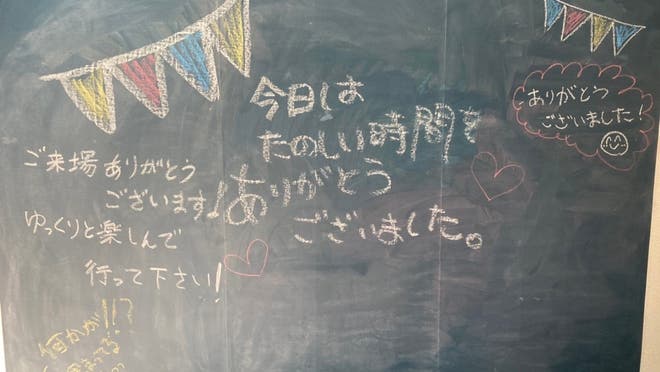 ご来場ありがとう
ございます!
ゆっくりと楽しんで
行って下さい!
今日は
たのしい時間を
ありがとう
ございました。
ありがとう
ございました!
何かが!!?